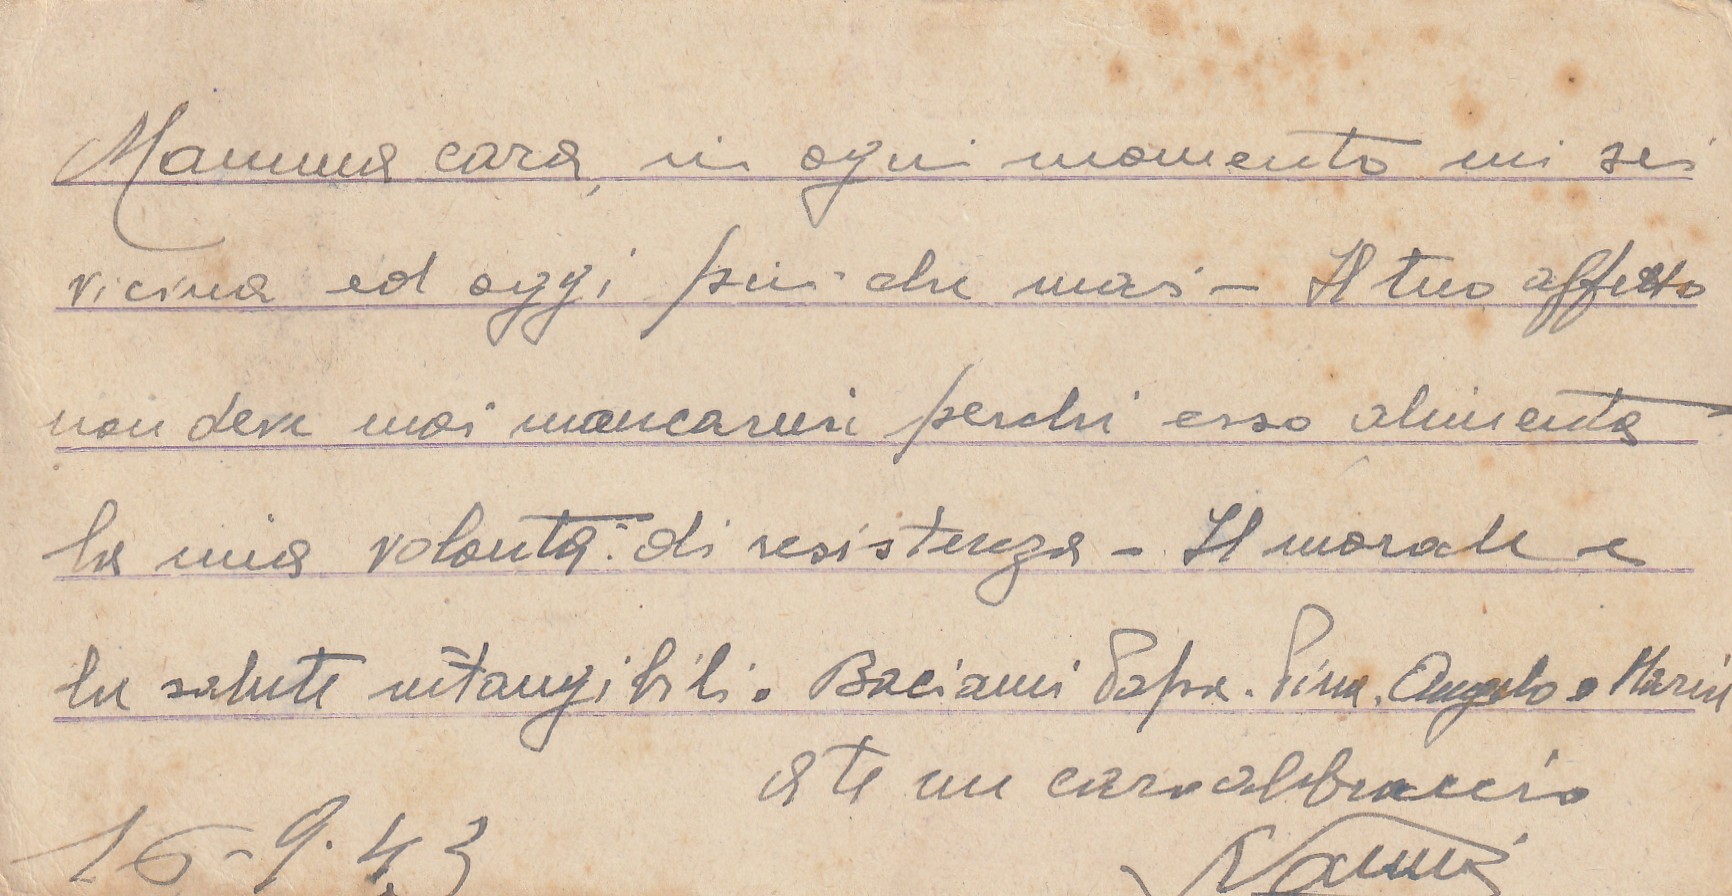 Mamma cara, in ogni momento mi sei
vicina ed oggi più che mai – Il tuo affetto
non deve mai mancarmi perchè esso alimenta
la mia volontà di resistenza – Il morale e
la salute intangibili. Baciami Papà. Pina. Angelo e Maria
a te un caro abbraccio
16-9.43 Nanni